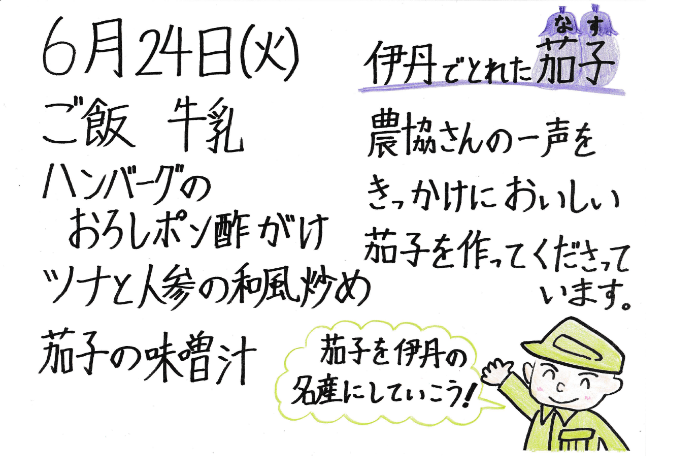 6月24日(火)
ご飯 牛乳
ハンバーグの
おろしポン酢がけ
ツナと人参の和風炒め
茄子の味噌汁
なす
伊丹でとれた茄子
農協さんの一声を
きっかけにおいしい
茄子を作ってくださって
います。
茄子を伊丹の
名産にしていこう!